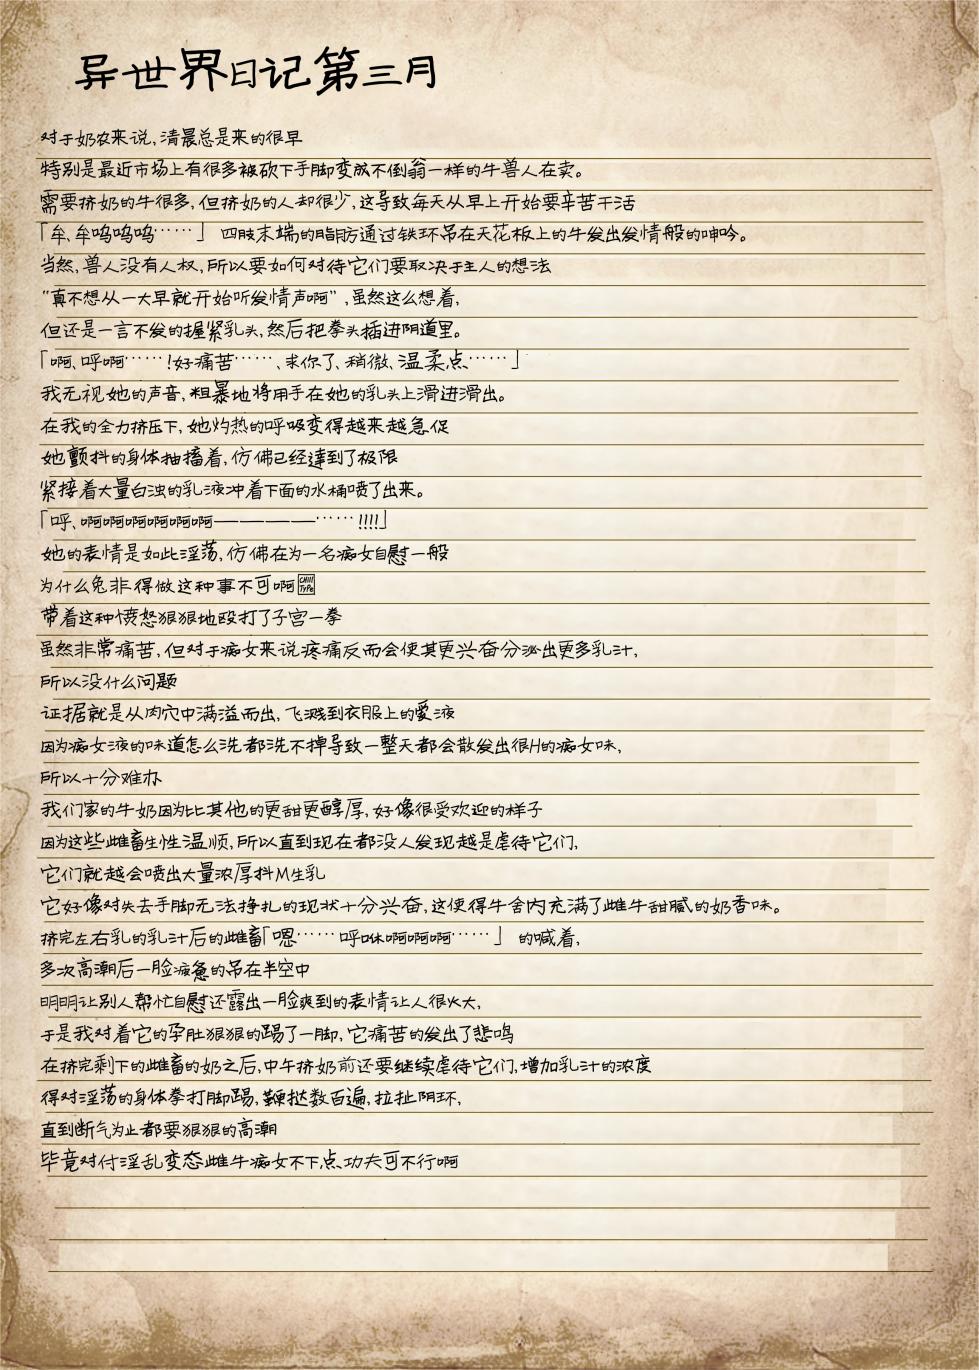 异世界日记第三月
对于奶农来说,清晨总是来的很早
特别是最近市场上有很多被砍下手脚变成不倒翁一样的牛兽人在卖。
需要挤奶的牛很多,但挤奶的人却很少,这导致每天从早上开始要辛苦干活
「牟、牟呜呜呜……」 四肢末端的脂肪通过铁环吊在天花板上的牛发出发情般的呻吟。
当然,兽人没有人权,所以要如何对待它们要取决于主人的想法
“真不想从一大早就开始听发情声啊”,虽然这么想着,
但还是一言不发的握紧乳头,然后把拳头插进阴道里。
「啊、呼啊……!好痛苦……、求你了、稍微、温柔点……」
我无视她的声音,粗暴地将用手在她的乳头上滑进滑出。
在我的全力挤压下,她灼热的呼吸变得越来越急促
她颤抖的身体抽搐着,仿佛已经達到了极限
紧接着大量白浊的乳液冲着下面的水桶喷了出来。
「呼、啊啊啊啊啊啊————……!!!!」
她的表情是如此淫荡,仿佛在为一名痴女自慰一般
为什么免非得做这种事不可啊
带着这种愤怒狠狠地殴打了子宫一拳
虽然非常痛苦,但对于痴女来说疼痛反而会使其更兴奋分泌出更多乳汁,
所以没什么问题
证据就是从肉穴中满溢而出,飞溅到衣服上的爱液
因为痴女液的味道怎么洗都洗不掉导致一整天都会散发出很H的痴女味,
所以十分难办
我们家的牛奶因为比其他的更甜更醇厚,好像很受欢迎的样子
因为这些雌畜生性温顺,所以直到现在都没人发现越是虐待它们,
它们就越会喷出大量浓厚抖M生乳
它好像对失去手脚无法挣扎的现状十分兴奋,这使得牛舍内充满了雌牛甜腻的奶香味。
挤完左右乳的乳汁后的雌畜「嗯……呼咻啊啊啊……」 的喊着,
多次高潮后一脸疲惫的吊在半空中
明明让别人帮忙自慰还露出一脸爽到的表情让人很火大,
于是我对着它的孕肚狠狠的踢了一脚,它痛苦的发出了悲鸣
在挤完剩下的雌畜的奶之后,中午挤奶前还要继续虐待它们,增加乳汁的浓度
得对淫荡的身体拳打脚踢,鞭挞数百遍,拉扯阴环,
直到断气为止都要狠狠的高潮
毕竟对付淫乱变态雌牛痴女不下点功夫可不行啊